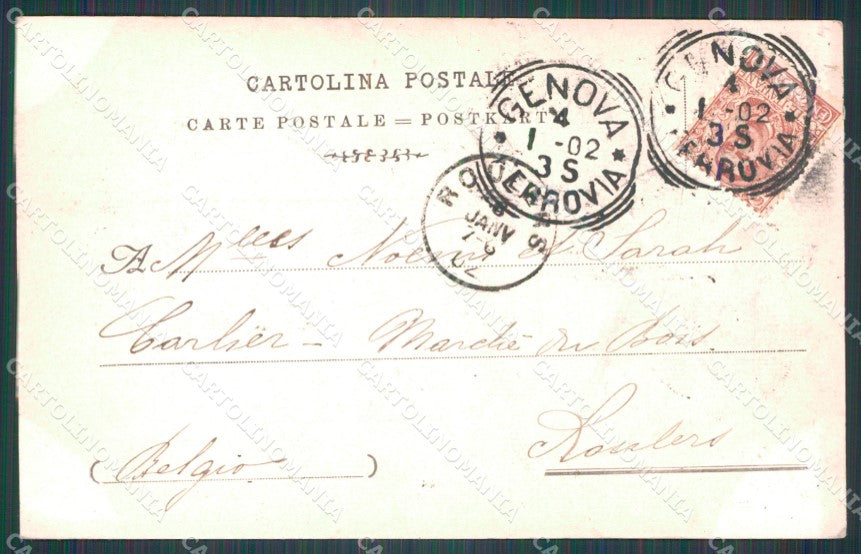 CARTOLINA POSTALE
CARTE POSTALE = POSTKARTE
GENOVA
4
1 -02
3 S
FERROVIA
GENOVA
4
1 -02
3 S
FERROVIA
ROULERS
6
JANV
7-8
02
A Melles Noémi et Sarah
Carlier - Marché du Bois
Roulers
(Belgio)
CARTOLINOMANIA